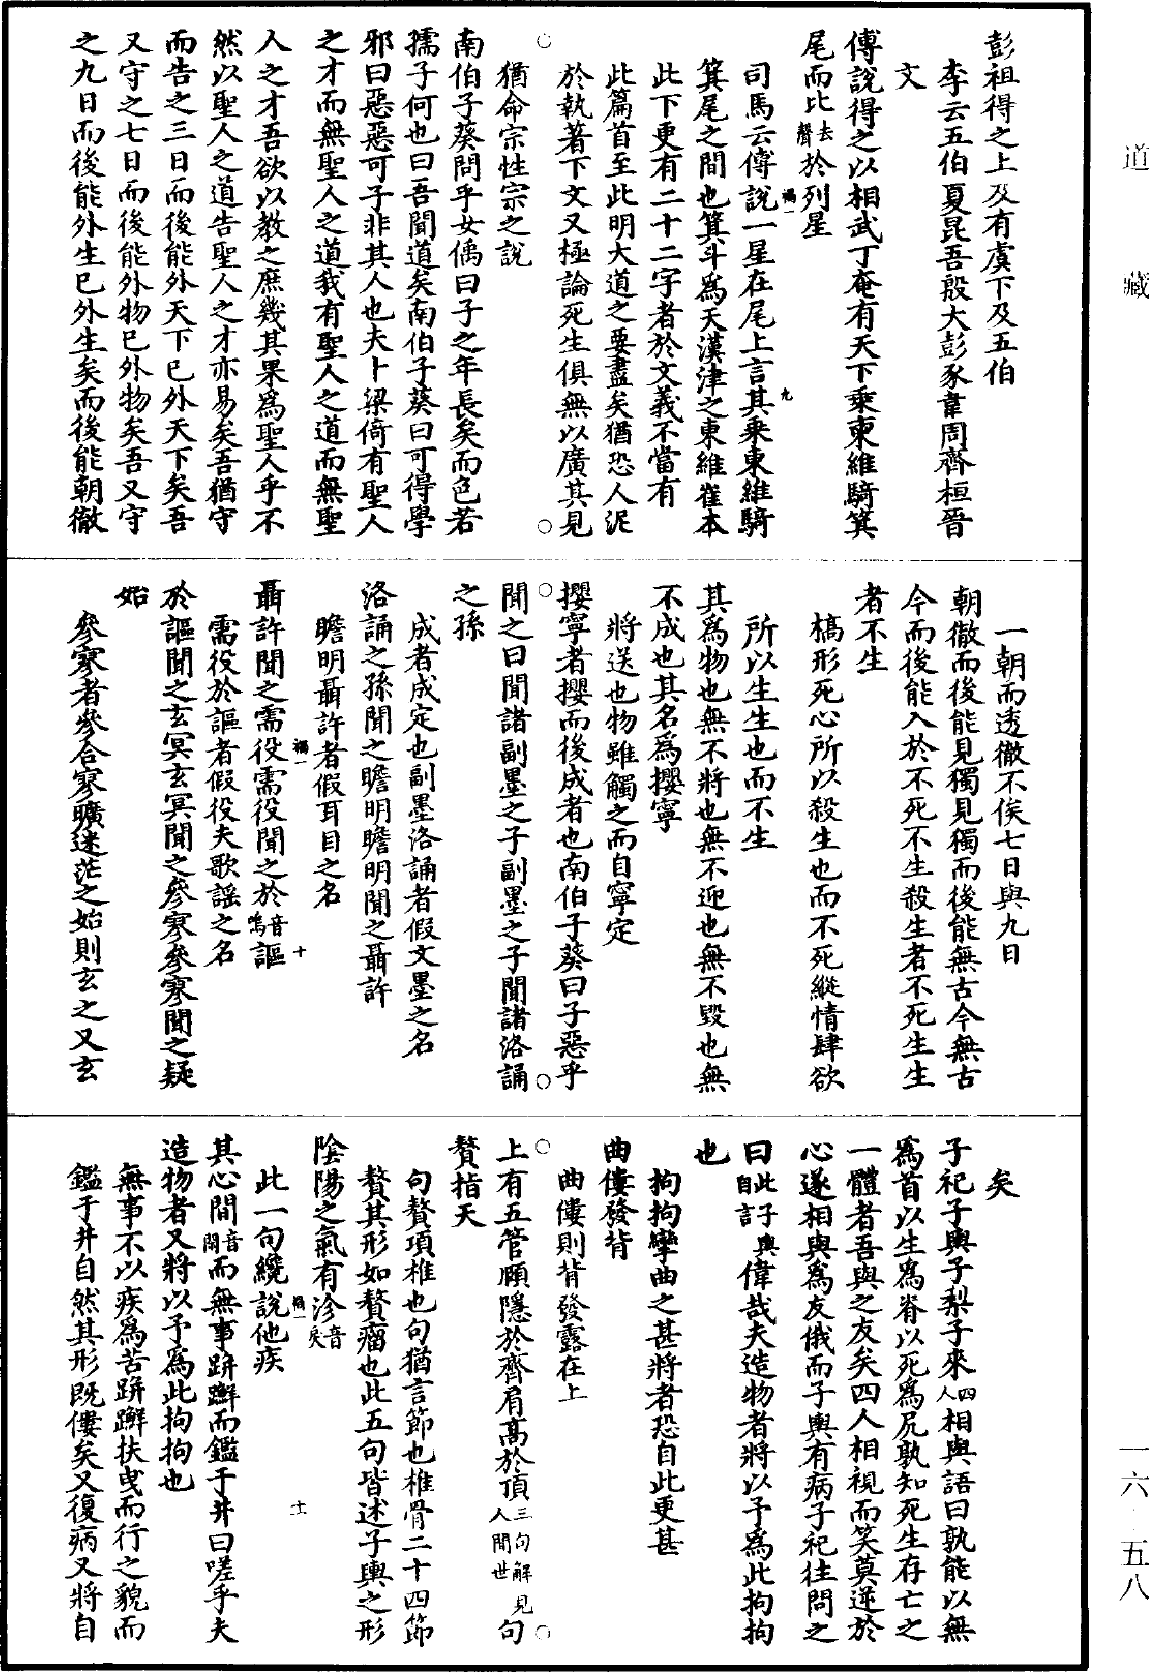 彭祖得之上及有虞下及五伯
李云五伯夏昆吾殷大彭豕韋周齊桓晉
文
傅說得之以相武丁奄有天下乘東維騎箕
尾而比去聲於列星
司馬云傅說一星在尾上言其乘東維騎
箕尾之間也箕斗爲天漢津之東維崔本
此下更有二十二字者於文義不當有
此篇首至此明大道之要盡矣猶恐人泥
於執著下文又極論死生俱無以廣其見
猶命宗性宗之說
南伯子葵問乎女偊曰子之年長矣而色若
孺子何也曰吾聞道矣南伯子葵曰可得學
邪曰惡惡可子非其人也夫卜梁倚有聖人
之才而無聖人之道我有聖人之道而無聖
人之才吾欲以教之庶幾其果爲聖人乎不
然以聖人之道告聖人之才亦易矣吾猶守
而告之三日而後能外天下已外天下矣吾
又守之七日而後能外物已外物矣吾又守
之九日而後能外生已外生矣而後能朝徹
一朝而透徹不俟七日與九日
朝徹而後能見獨見獨而後能無古今無古
今而後能入於不死不生殺生者不死生生
者不生
槁形死心所以殺生也而不死縱情肆欲
所以生生也而不生
其爲物也無不將也無不迎也無不毀也無
不成也其名爲攖寧
將送也物雖觸之而自寧定
攖寧者攖而後成者也南伯子葵曰子惡乎
聞之曰聞諸副墨之子副墨之子聞諸洛誦
之孫
成者成定也副墨洛誦者假文墨之名
洛誦之孫聞之瞻明瞻明聞之聶許
瞻明聶許者假耳目之名
聶許聞之需役需役聞之於音嗚謳
需役於謳者假役夫歌謠之名
於謳聞之玄冥玄冥聞之參寥參寥聞之疑
始
參寥者參合寥曠迷茫之始則玄之又玄
矣
子祀子輿子犁子來四人相與語曰孰能以無
爲首以生爲脊以死爲尻孰知死生存亡之
一體者吾與之友矣四人相視而笑莫逆於
心遂相與爲友俄而子輿有病子祀往問之
曰此子輿自言偉哉夫造物者將以予爲此拘拘
也
拘拘攣曲之甚將者恐自此更甚
曲僂發背
曲僂則背發露在上
上有五管頤隱於齊肩高於頂三句解見人間世句
贅指天
句贅項椎也句猶言節也椎骨二十四節
贅其形如贅瘤也此五句皆述子輿之形
陰陽之氣有沴音戾
此一句纔說他疾
其心閒音閑而無事跰𨇤而鑑于井曰嗟乎夫
造物者又將以予爲此拘拘也
無事不以疾爲苦跰𨇤扶曳而行之貌而
鑑于井自然其形既僂矣又復病又將自
道藏
一六 五八